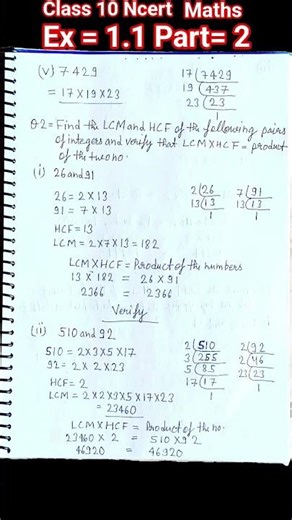 Class 10 Ncert Maths
Ex = 1.1 Part= 2
(v) 7429
= 17×19×23
17 7429
19 437
23 23
1
Q2= Find the LCM and HCF of the following pairs
of integers and verify that LCM×HCF = product
of the two no.
(i) 26 and 91
26 = 2×13
91 = 7×13
HCF = 13
LCM = 2×7×13 = 182
2 26
13 13
1
7 91
13 13
1
LCM×HCF = Product of the numbers
13 × 182 = 26 × 91
2366 = 2366
Verify
(ii) 510 and 92
510 = 2×3×5×17
92 = 2×2×23
HCF = 2
LCM = 2×2×3×5×17×23
= 23460
2 510
3 255
5 85
17 17
1
2 92
2 46
23 23
1
LCM×HCF = Product of the no.
23460 × 2 = 510×92
46920 = 46920